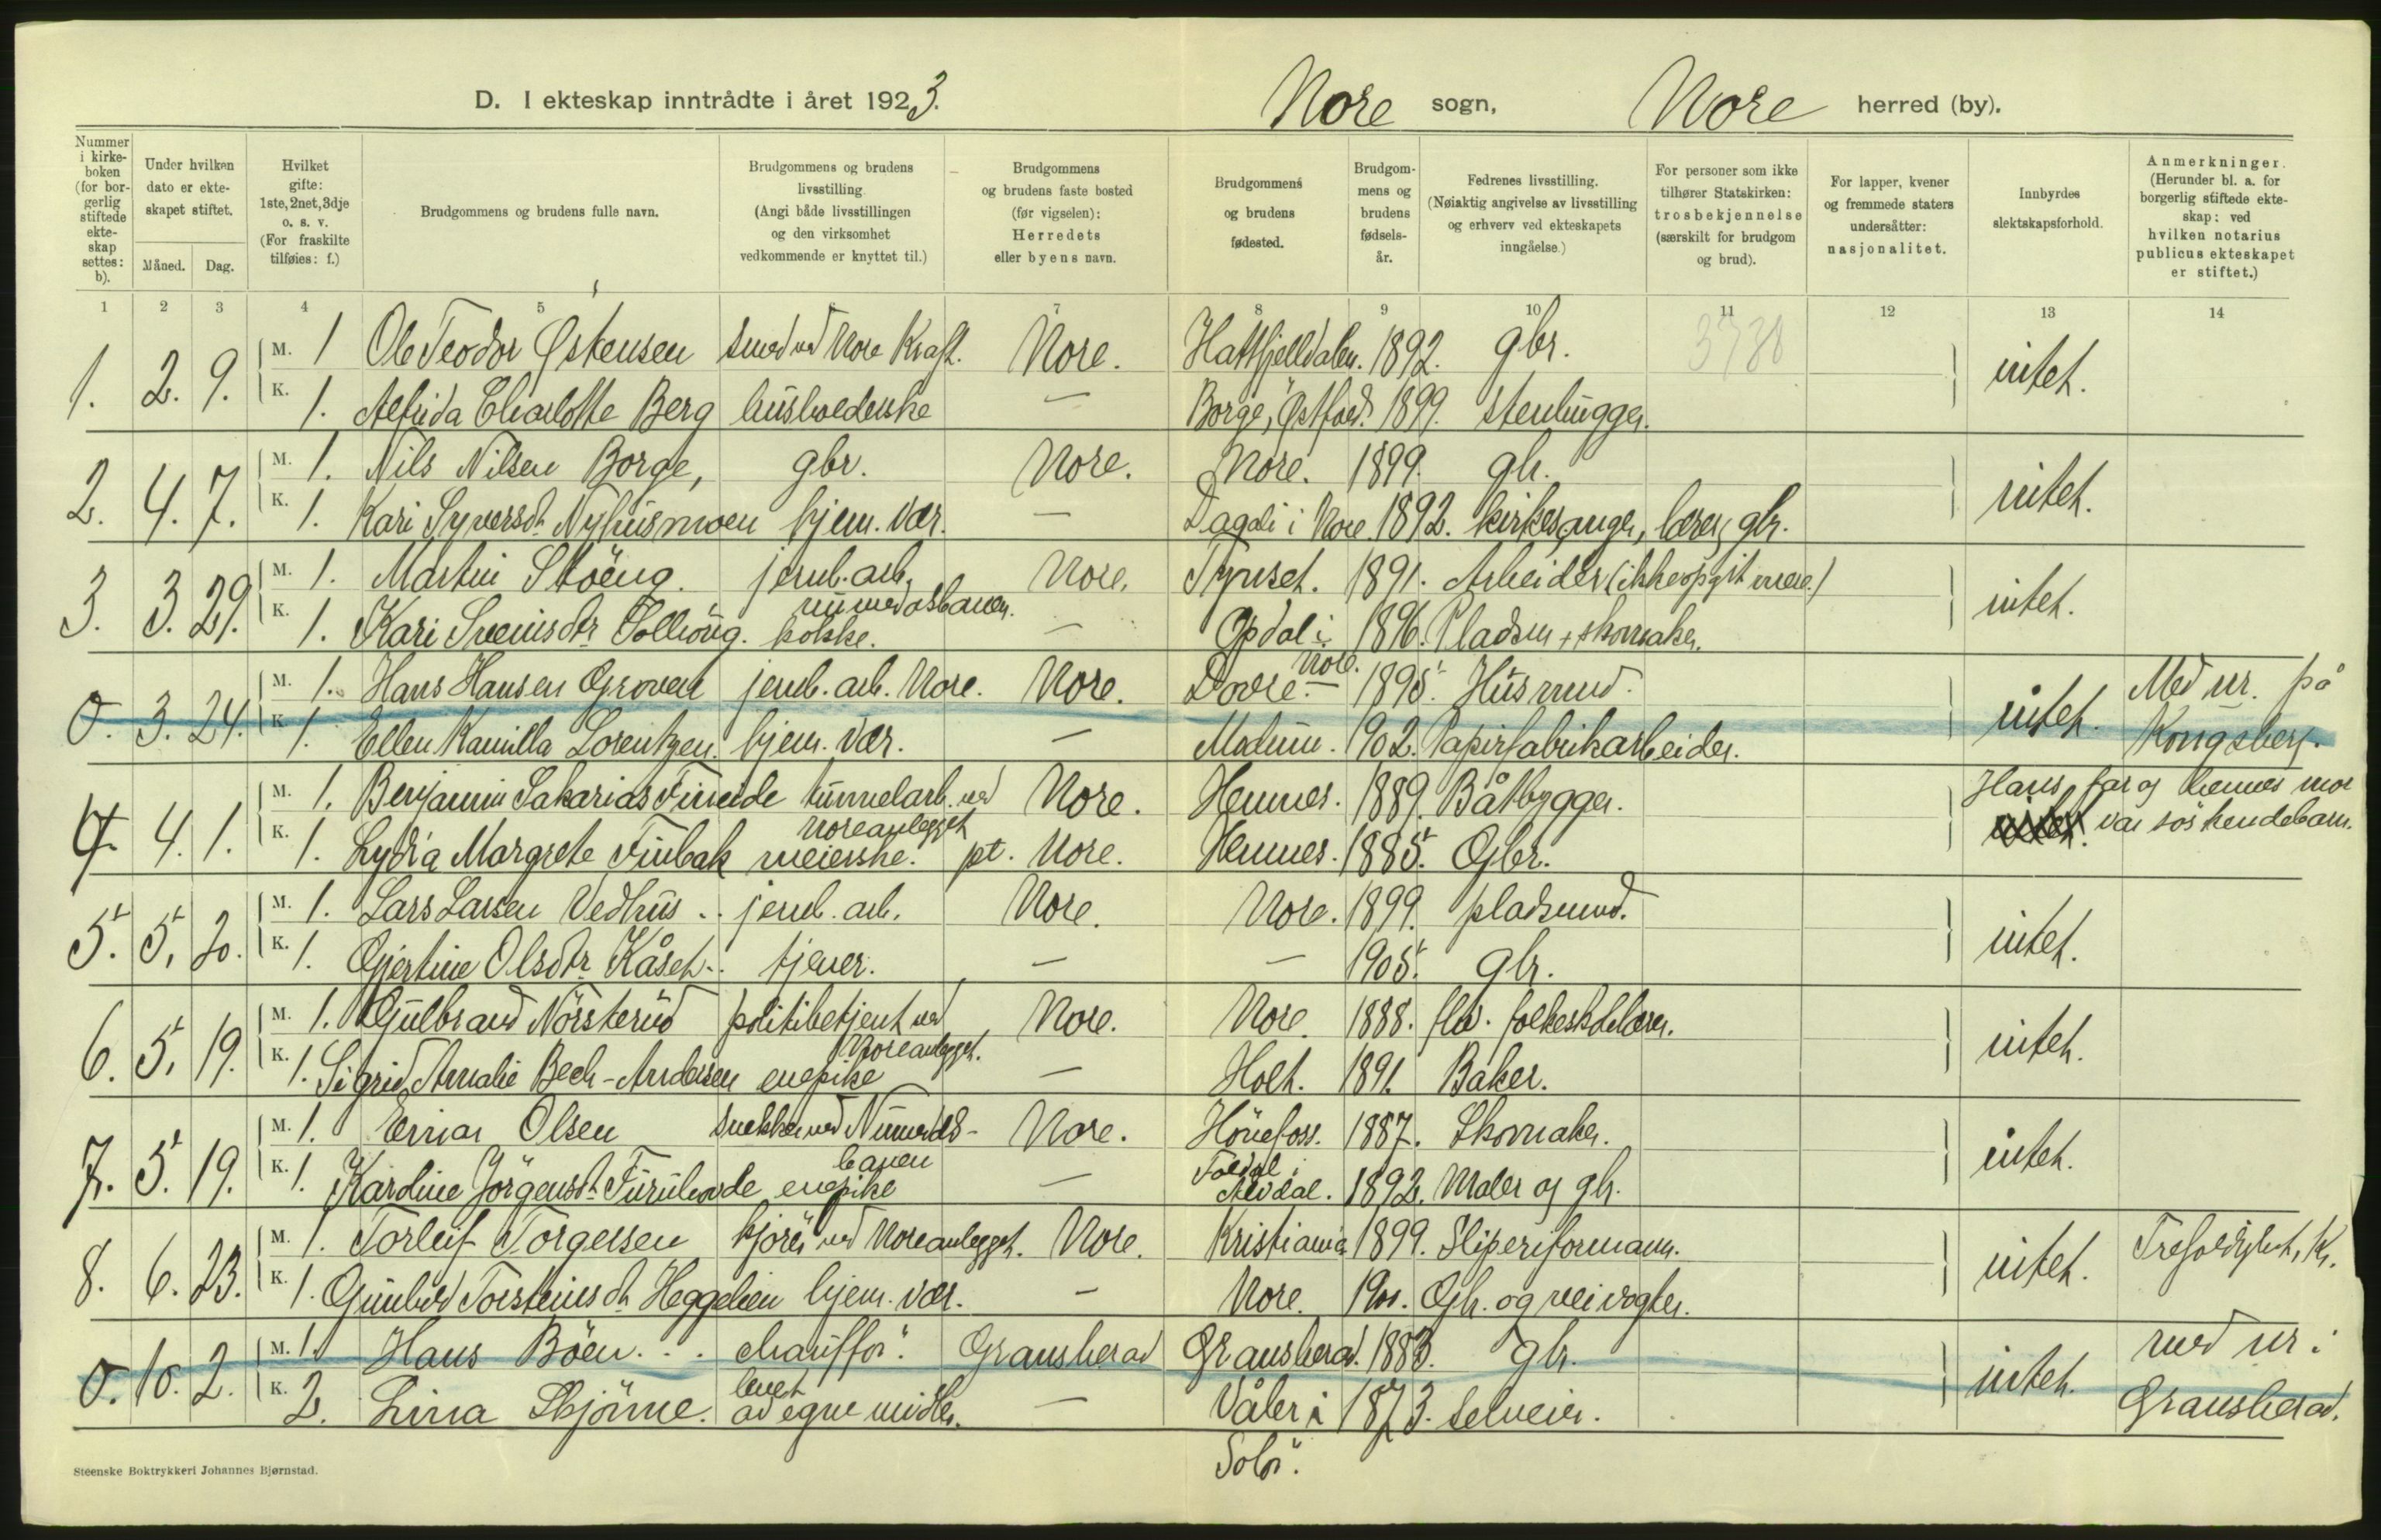 D. I ekteskap inntrådte i året 1923.
Nore sogn, Nore herred (by).
Nummer i kirkeboken (for borgerlig stiftede ekteskap settes: b).
Under hvilken dato er ekteskapet stiftet.
Måned. Dag.
Hvilket gifte: 1ste, 2net, 3dje o. s. v. (For fraskilte tilføies: f.)
Brudgommens og brudens fulle navn.
Brudgommens og brudens livsstilling. (Angi både livsstillingen og den virksomhet vedkommende er knyttet til.)
Brudgommens og brudens faste bosted (før vigselen): Herredets eller byens navn.
Brudgommens og brudens fødested.
Brudgommens og brudens fødselsår.
Fedrenes livsstilling. (Nøiaktig angivelse av livsstilling og erhverv ved ekteskapets inngåelse.)
For personer som ikke tilhører Statskirken: trosbekjennelse (særskilt for brudgom og brud).
For lapper, kvener og fremmede staters undersåtter: nasjonalitet.
Innbyrdes slektskapsforhold.
Anmerkninger. (Herunder bl. a. for borgerlig stiftede ekteskap: ved hvilken notarius publicus ekteskapet er stiftet.)
1 2 3 4 5 6 7 8 9 10 11 12 13 14
1. 2. 9. M. 1 Ole Teodor Østensen smed ved Nore Kraft. Nore. Hattfjelldalen. 1892. gbr. intet.
K. 1. Alfrida Charlotte Berg husholderske — Borge, Østfold. 1899. stenhugger.
2. 4. 7. M. 1. Nils Nilsen Borge, gbr. Nore. Nore. 1899. gbr. intet.
K. 1. Kari Syversdt. Nyhusmoen hjem. vær. — Dagali i Nore. 1892. kirkesanger, lærer, gbr.
3. 3. 29. M. 1. Martin Stöeng. jernb. arb. Numedalsbanen. Nore. Tynset. 1891. Arbeider (ikke opgit mere.) intet.
K. 1. Kari Sveinsdtr. kokke. — Opdal i Nore. 1896. Pladsm. + skomaker.
0. 3. 24. M. 1. Hans Hansen Groven jernb. arb. Nore. Nore. Dovre. 1895. Husmand. intet. Med nr. på
K. 1. Ellen Kamilla Lorentzen. hjem. vær. — Modum. 1902. Papirfabrikarbeider. Kongsberg.
4. 4. 1. M. 1. Benjamin Sakarias Fineide tunnelarb. ved Noreanlegget Nore. Hemnes. 1889. Båtbygger. Hans far og hennes mor
K. 1. Lydia Margrete Finbak meierske. pt. Nore. Hemnes. 1885. Gbr. var söskendebarn.
5. 5. 20. M. 1. Lars Larsen Vedhus jernb. arb. Nore. Nore. 1899. pladsmand. intet.
K. 1. Gjertine Olsdtr. Kåset tjener. — — 1905. gbr.
6. 5. 19. M. 1. Gulbrand Nörsterud politibetjent ved Noreanlegget. Nore. Nore. 1888. fhv. folkeskolelærer. intet.
K. 1. Sigrid Amalie Bech-Andersen enepike — Holt. 1891. Baker.
7. 5. 19. M. 1. Einar Olsen snekker ved Numedals-banen Nore. Hönefoss. 1887. Skomaker. intet.
K. 1. Karoline Jörgensdt. Furuhovde enepike — Foldal i Alvdal. 1892. Maler og gbr.
8. 6. 23. M. 1. Torleif Torgersen kjörer ved Noreanlegget. Nore. Kristiania 1899. Sliperiformann. intet. Trefoldighet, Kr.
K. 1. Gunhild Torsteinsdt. Heggelien hjem. vær. — Nore. 1901. Gbr. og veivogter.
0. 10. 2. M. 1. Hans Böen chauffør. Gransherad Gransherad. 1883. gbr. intet. med nr. i
K. 2. Lina Skjörne. levet av egne midler. — Våler i Solör. 1873. selveier. Gransherad.
Steenske Boktrykkeri Johannes Bjørnstad.